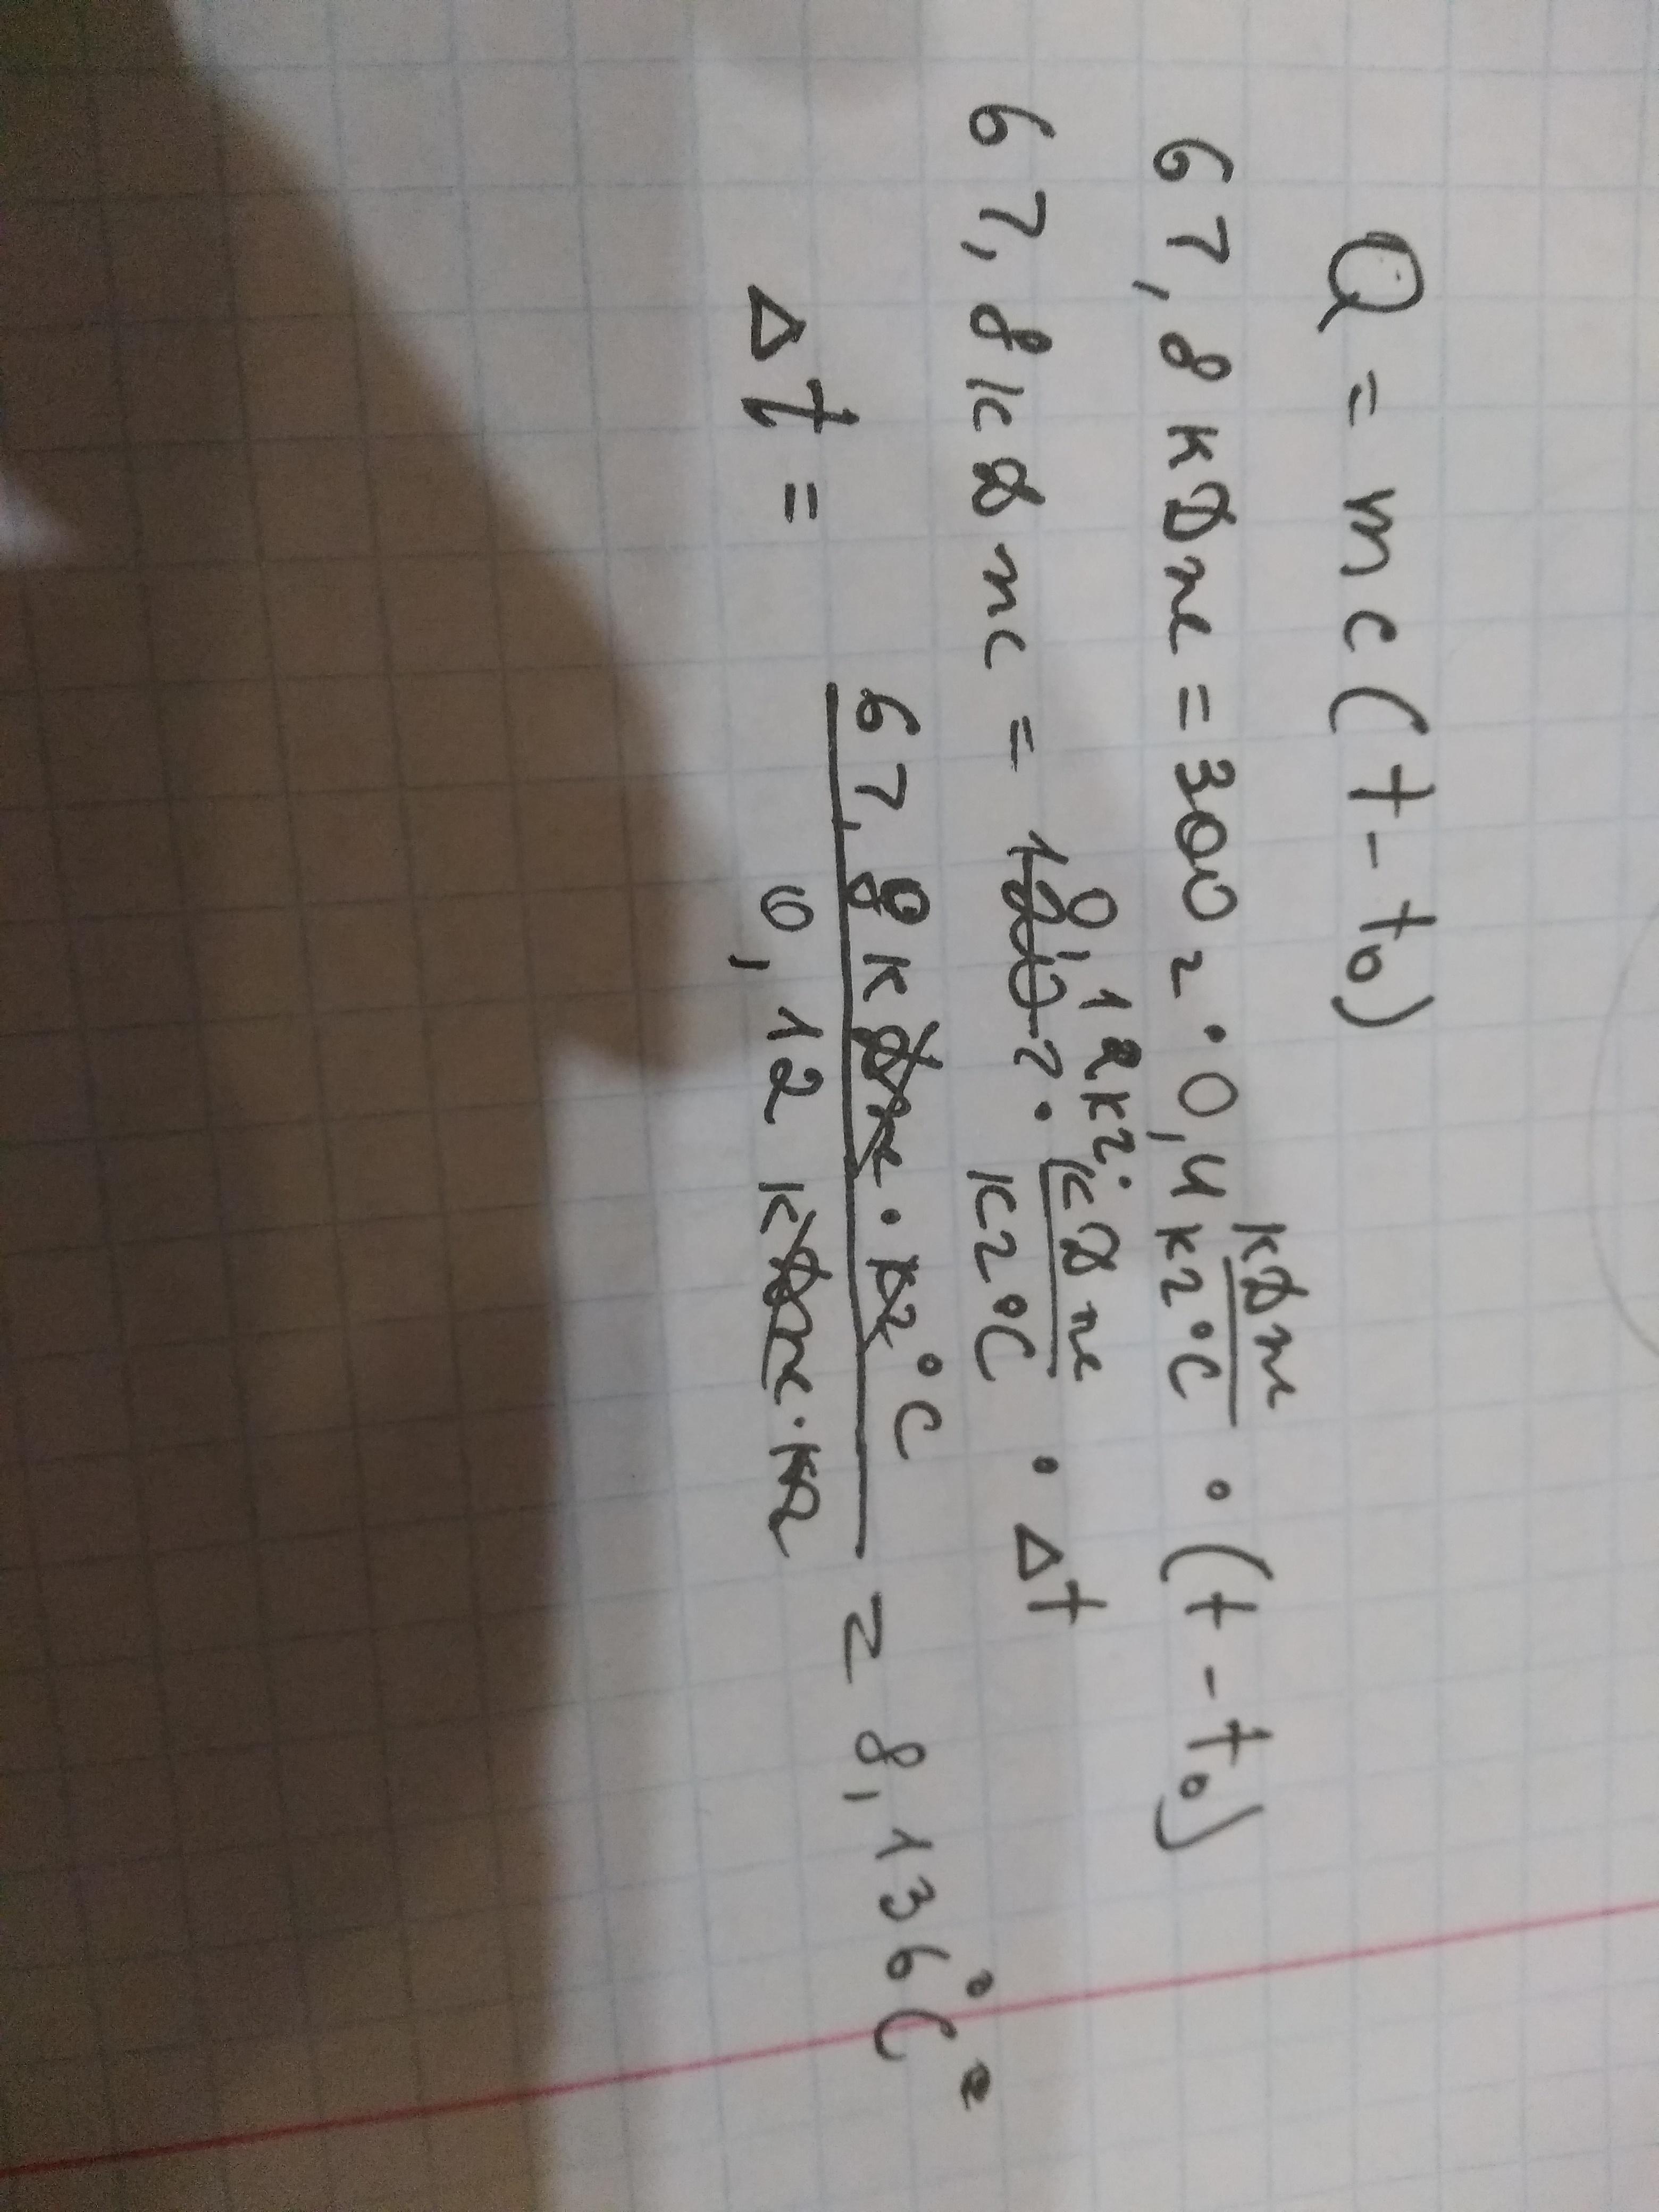 Q = mc(t - t₀)
67,8 кДж = 300 г · 0,4 кДж/кг°C · (t - t₀)
67,8 кДж = 0,12 кг · кДж/кг°C · Δt
Δt = 67,8 кДж · кг°C / 0,12 кДж · кг = 8,136 °C